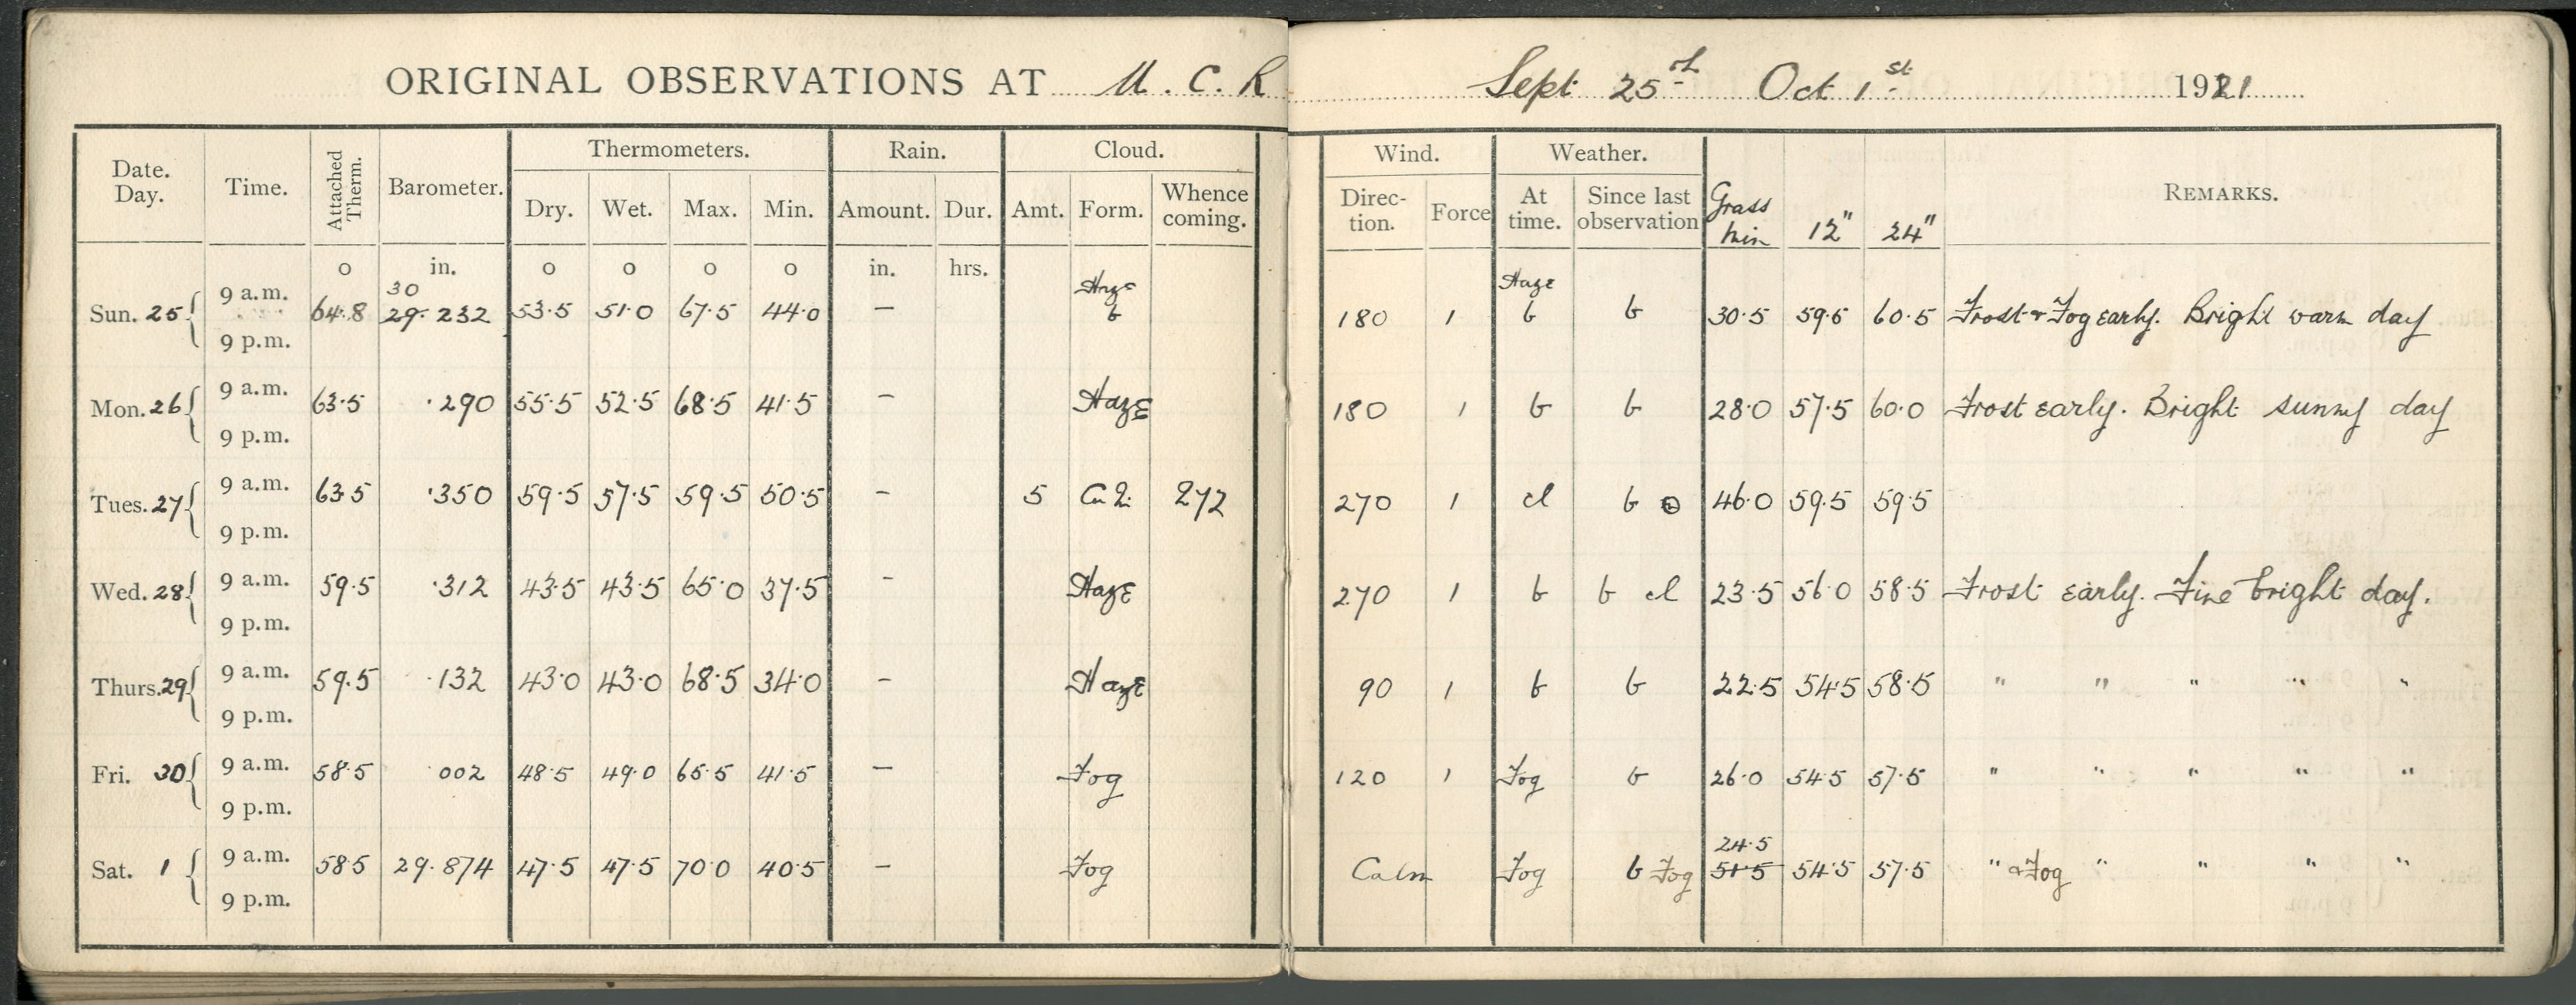 ORIGINAL OBSERVATIONS AT M. C. R Sept 25th Oct 1st 1921
Date. Day. Time. Attached Therm. Barometer. Thermometers. Rain. Cloud. Wind. Weather. Grass min 12" 24" REMARKS.
Dry. Wet. Max. Min. Amount. Dur. Amt. Form. Whence coming. Direc- tion. Force At time. Since last observation
o in. o o o o in. hrs.
30 Haze Haze
Sun. 25 9 a.m. 64.8 29.232 53.5 51.0 67.5 44.0 — b 180 1 b b 30.5 59.5 60.5 Frost & Fog early. Bright warm day
9 p.m.
Mon. 26 9 a.m. 63.5 .290 55.5 52.5 68.5 41.5 — Haze 180 1 b b 28.0 57.5 60.0 Frost early. Bright sunny day
9 p.m.
Tues. 27 9 a.m. 63.5 .350 59.5 57.5 59.5 50.5 — 5 Cu 272 270 1 cl b 46.0 59.5 59.5
9 p.m.
Wed. 28 9 a.m. 59.5 .312 43.5 43.5 65.0 37.5 — Haze 270 1 b b cl 23.5 56.0 58.5 Frost early. Fine bright day.
9 p.m.
Thurs. 29 9 a.m. 59.5 .132 43.0 43.0 68.5 34.0 — Haze 90 1 b b 22.5 54.5 58.5 " " " " "
9 p.m.
Fri. 30 9 a.m. 58.5 .002 48.5 49.0 65.5 41.5 — Fog 120 1 Fog b 26.0 54.5 57.5 " " " " "
9 p.m.
24.5
Sat. 1 9 a.m. 58.5 29.874 47.5 47.5 70.0 40.5 — Fog Calm Fog b Fog 51.5 54.5 57.5 " & Fog " " " "
9 p.m.